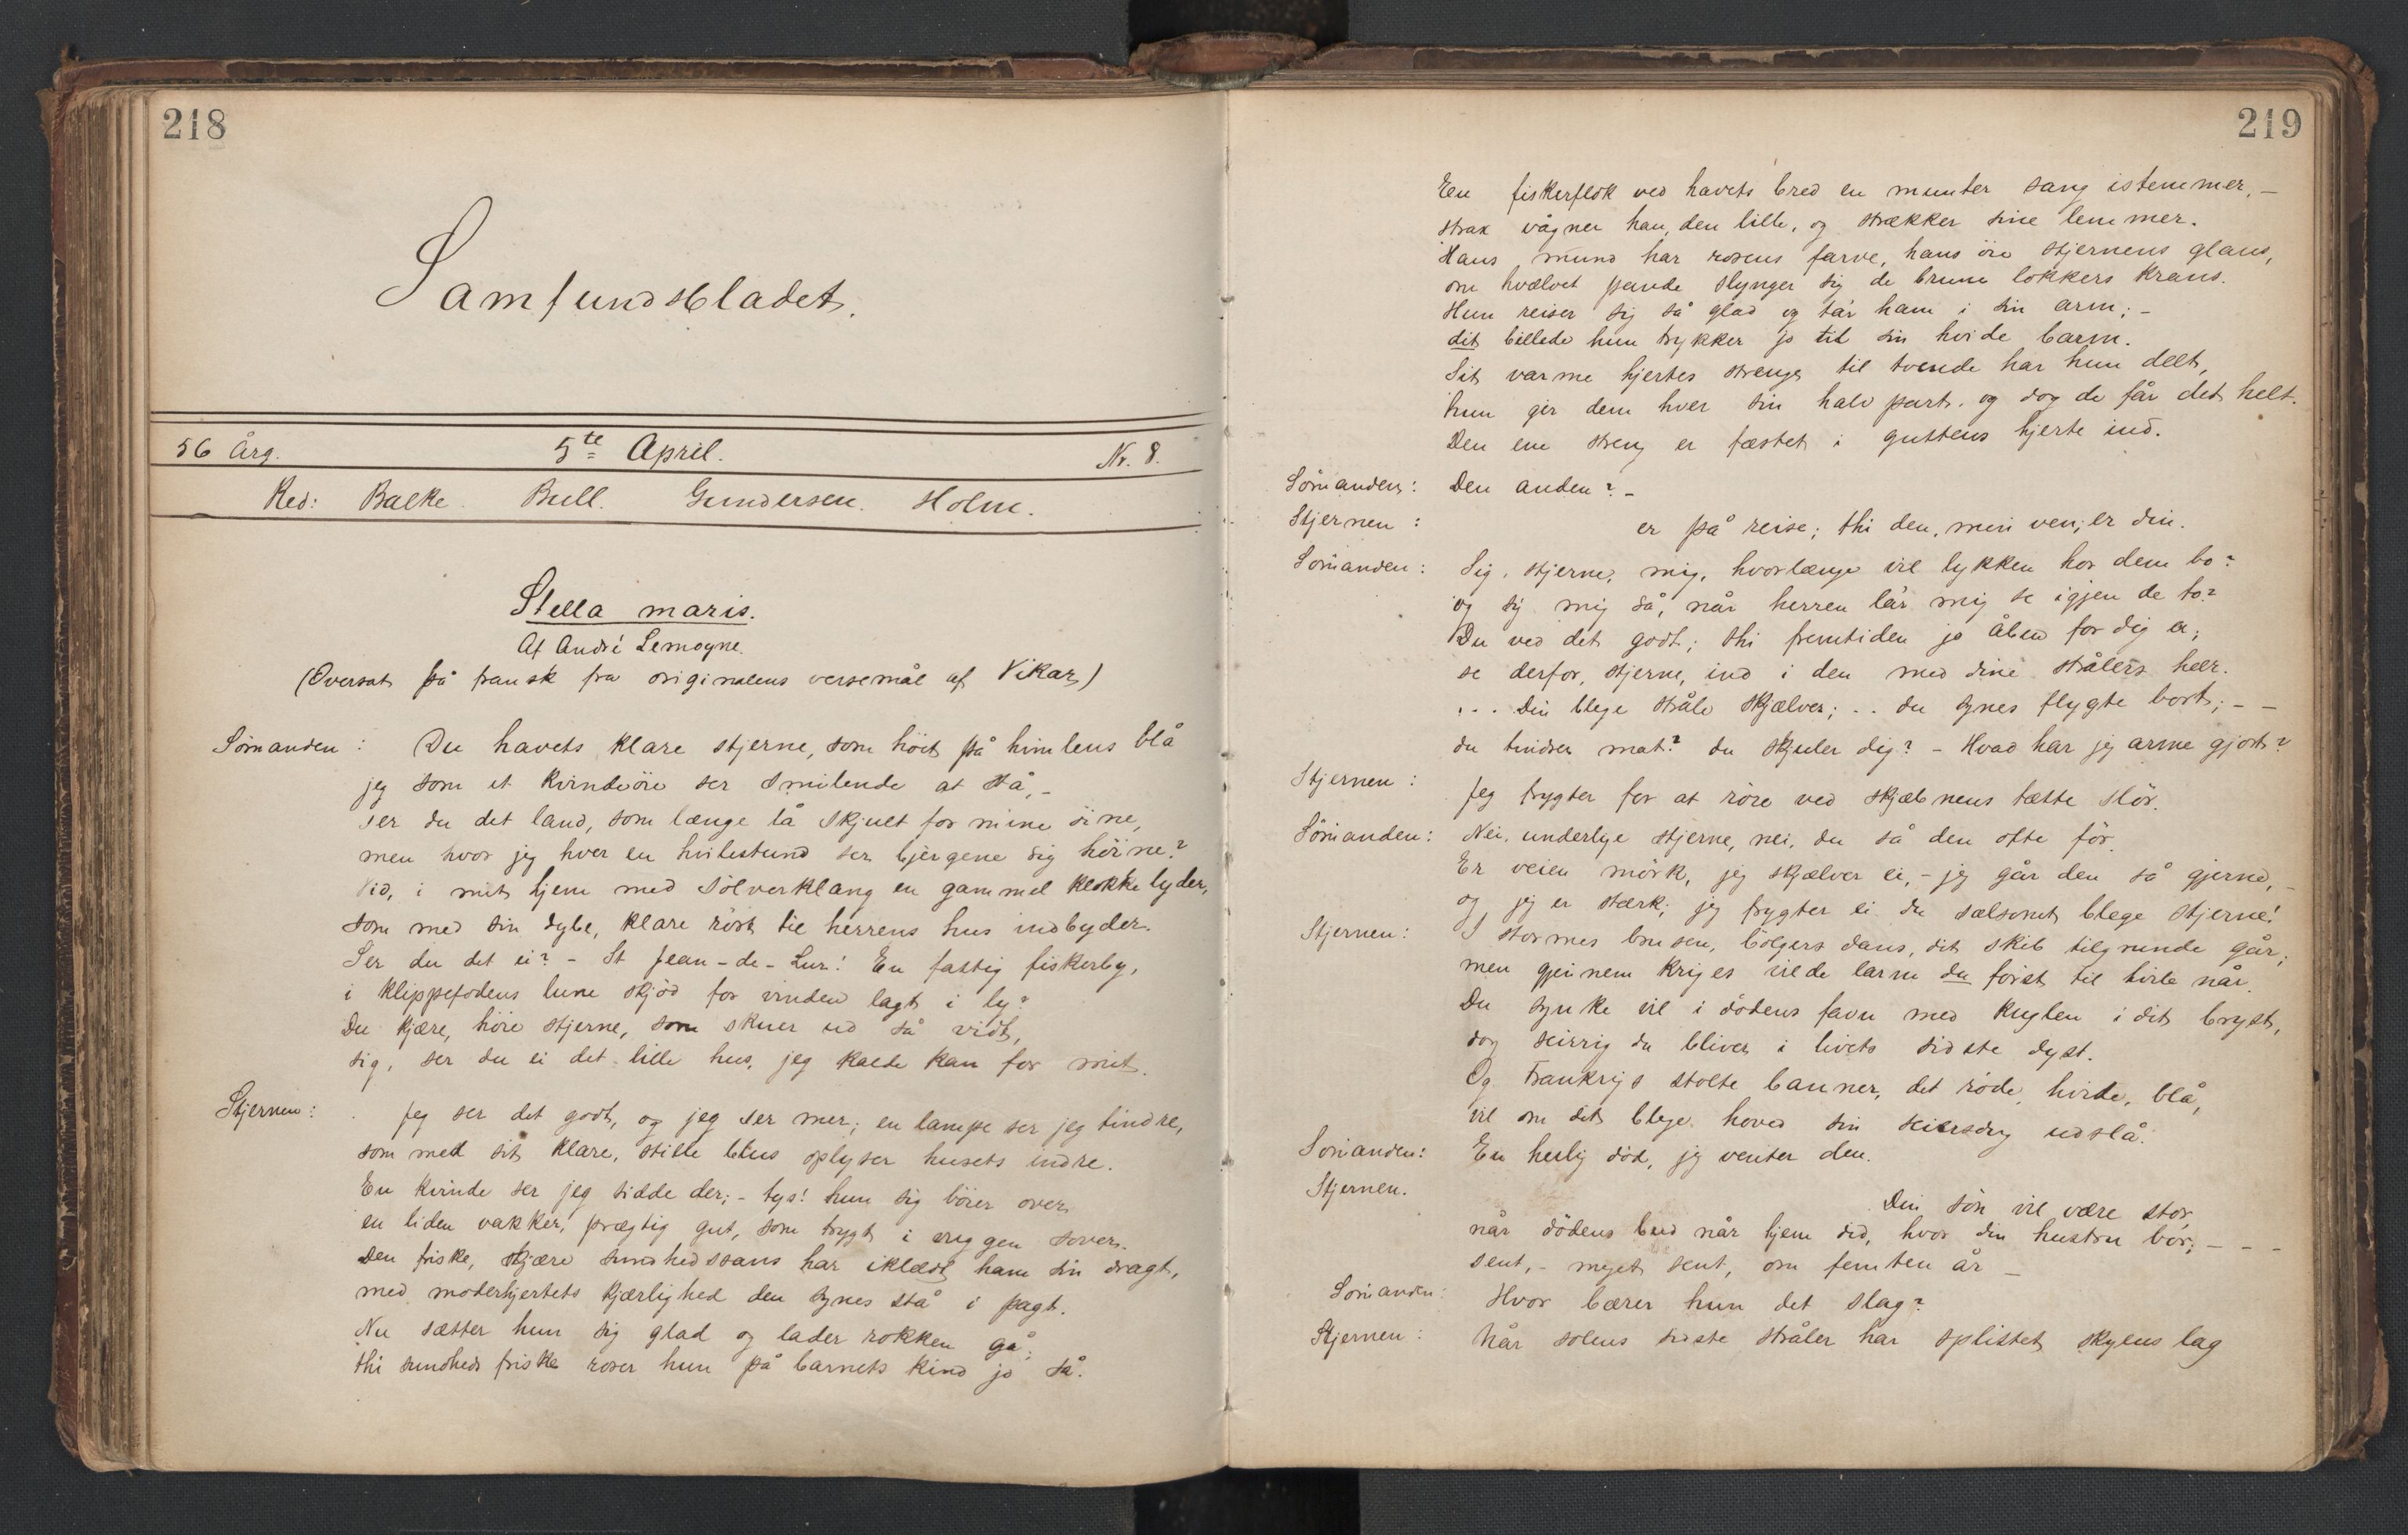 218
Samfundsbladet.
56 Årg. 5te April. Nr. 8.
Red: Balke. Bull. Gundersen. Holm.
Stella maris.
Af André Lemoyne.
(Oversat på fransk fra originalens versemål af Vikar)
Sömanden: Du havets klare stjerne, som höit på himlens blå
jeg som et kvindeöie ser smilende at stå, -
ser du det land, som længe lå skjult for mine öine,
men hvor jeg hver en hvilestund ser bjergene sig höine?
Ved, i mit hjem med sölverklang en gammel klokke lyder,
som med sin dybe, klare röst til herrens hus indbyder.
Ser du det ei? - St Jean-de-Luz! En fattig fiskerby,
i klippefodens lune skjöd for vinden lagt i ly?
Du kjære, höie stjerne, som skuer ud så vidt,
sig, ser du ei det lille hus, jeg kalde kan for mit.
Stjernen: Jeg ser det godt, og jeg ser mer; en lampe ser jeg tindre,
som med sit klare, stille blus oplyser husets indre.
En kvinde ser jeg sidde der; - tys! hun sig böier over
en liden vakker, prægtig gut, som trygt i vuggen sover.
Den friske, skjære sundhedssans har iklædt ham sin dragt,
med moderhjertets kjærlighed den synes stå i pagt.
Nu sætter hun sig glad og lader rokken gå;
thi sundheds friske roser hun på barnets kind jo så.
219
En fiskerflok ved havets bred en munter sang istemmer, -
strax vågner han, den lille, og strækker sine lemmer.
Hans mund har rosens farve, hans öie stjernens glans,
om hvælvet pande slynger sig de brune lokkers krans.
Hun reiser sig så glad og tar ham i sin arm; -
dit billede hun trykker jo til sin hvide barm.
Sit varme hjertes strenge til tvende har hun delt,
hun gir dem hver sin halvpart, og dog de får det helt.
Den ene streng er fæstet i guttens hjerte ind.
Sömanden: Den anden? -
Stjernen: er på reise; thi den, min ven, er din.
Sömanden: Sig, stjerne, mig, hvorlænge vil lykken hos dem bo?
og sig mig så, når herren lar mig se igjen de to?
Du ved det godt; thi fremtiden jo åben for dig er;
se derfor, stjerne, ind i den med dine strålers hær.
... Din blege stråle skjælver; .. du synes flygte bort; - -
du tindrer mat? du skjuler dig? - Hvad har jeg arme gjort?
Stjernen: Jeg frygter for at röre ved skjæbnens tætte slör.
Sömanden: Nei, underlige stjerne, nei, du så den ofte för.
Er veien mörk, jeg skjælver ei, - jeg går den så gjerne, -
og jeg er stærk; jeg frygter ei du sælsomt blege stjerne!
Stjernen: I stormes brusen, bölgers dans, dit skib tilgrunde går;
men gjennem kriges vilde larm du först til hvile når.
Du synke vil i dödens favn med kuglen i dit bryst,
dog seirrig du bliver i livets sidste dyst.
Og Frankrigs stolte banner, det röde, hvide, blå,
vil om dit blege hoved sin seiersdug udslå.
Sömanden: En herlig död, jeg venter den.
Stjernen. Din sön vil være stor,
når dödens bud når hjem did, hvor din hustru bor; - - -
sent, - meget sent, om femten år -
Sömanden: Hvor bærer hun det slag?
Stjernen: Når solens sidste stråler har splittet skyens lag